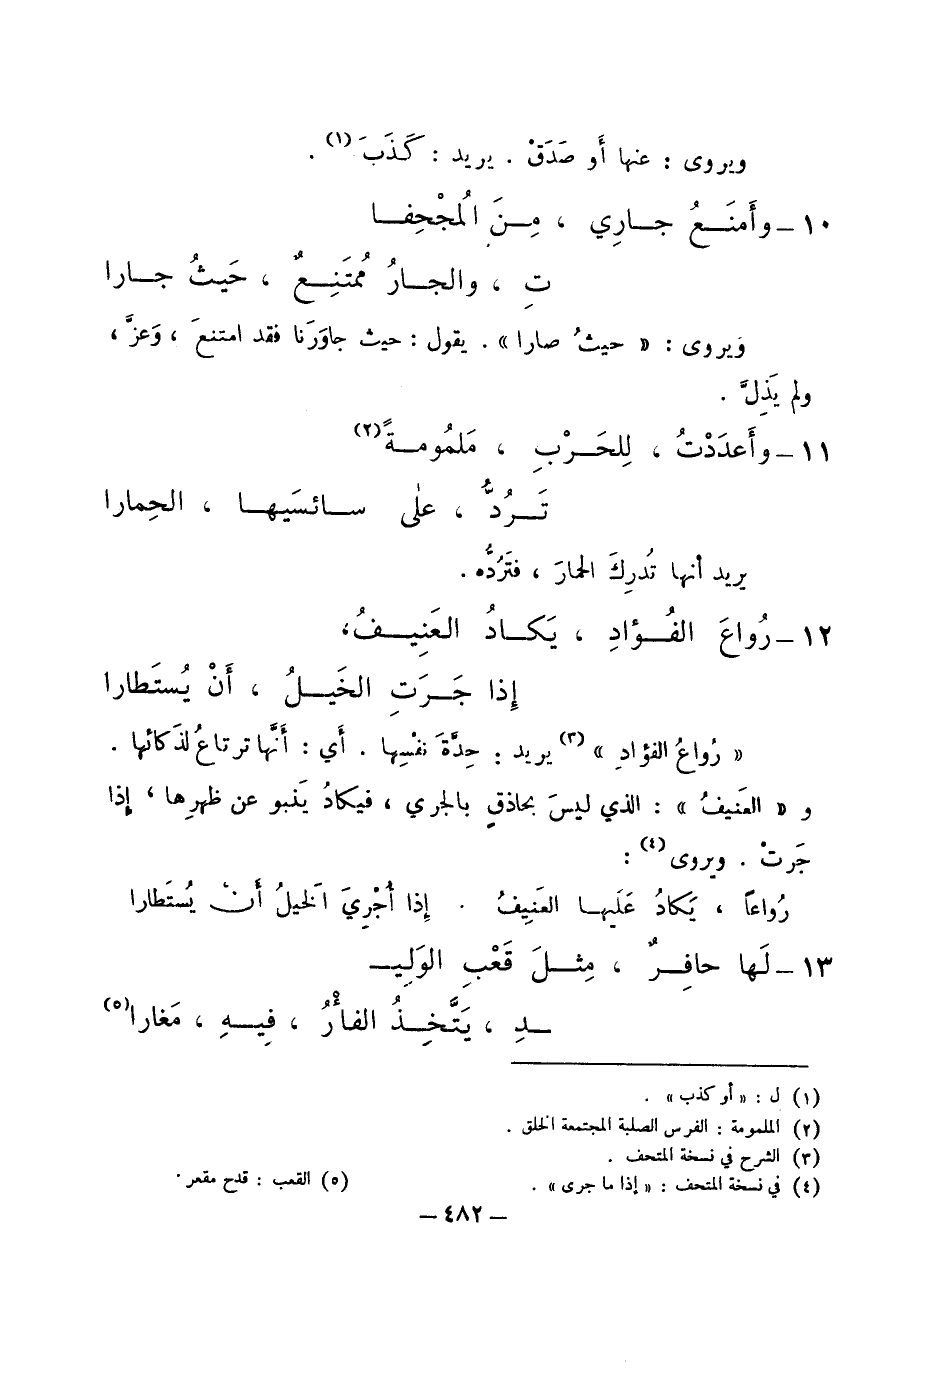 ويروى : عنها أَو صَدَقْ . يريد : كَذَبَ (١) .
١٠ – وأَمنَـــعُ جـــارِي ، مِـــنَ المُجْحِفـــا
تِ ، والجـــارُ مُمتَنِـــعٌ ، حَيثُ جـــارا
ويروى : « حيثُ صارا » . يقول : حيث جاوَرَنا فقد امتنعَ ، وَعزَّ ،
ولم يَذِلَّ .
١١ – وأَعدَدْتُ ، لِلحَـــرْبِ ، مَلمُومـــةً (٢)
تَـــرُدُّ ، علٰى ســـائسَيهـــا ، الحِمارا
يريد أنها تُدرِكَ الحمارَ ، فتَرُدُّه .
١٢ – رُواعَ الفُـــؤادِ ، يَكـــادُ العَنِيـــفُ،
إِذا جَـــرَتِ الخَيـــلُ ، أَنْ يُستَطارا
« رُواعُ الفؤادِ » (٣) يريد : حِدَّةَ نفْسِها . أَي : أَنَّها ترتاعُ لذَكائها .
و « العَنيفُ » : الذي ليسَ بحاذقٍ بالجري ، فيكادُ يَنبو عن ظهرِها ، إِذا
جَرتْ . ويروى (٤) :
رُواعاً ، يَكادُ عَلَيها العَنِيفُ . إِذا أُجْرِيَ الخيلُ أَنْ يُستَطارا
١٣ – لَها حافِـــرٌ ، مِثـــلَ قَعْبِ الوَلِيـــ
ـــدِ ، يَتَّخِـــذُ الفأْرُ ، فِيـــهِ ، مَغارا (٥)
(١) ل : « أو كذب » .
(٢) الملمومة : الفرس الصلبة المجتمعة الخلق .
(٣) الشرح في نسخة المتحف .
(٤) في نسخة المتحف : « إذا ما جرى » .
(٥) القعب : قدح مقعر .
– ٤٨٢ –